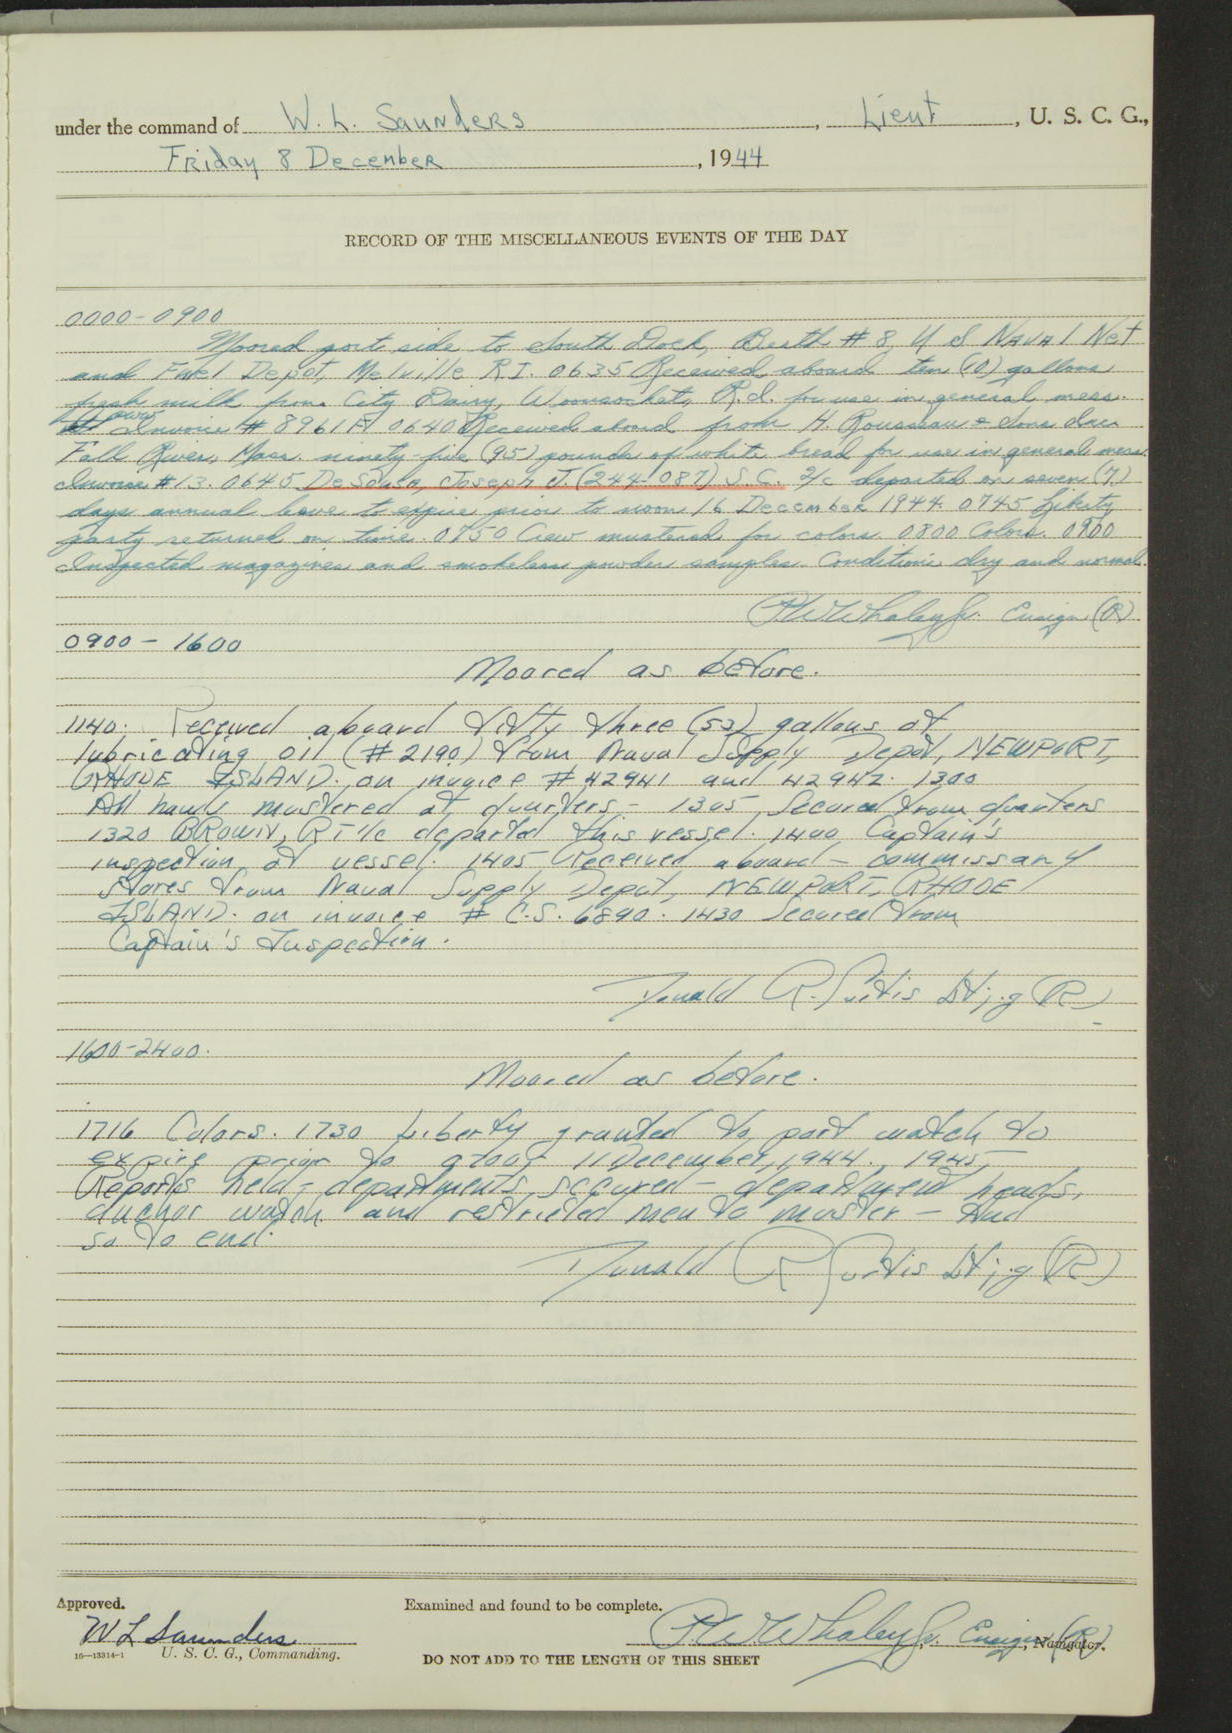 under the command of W. L. Saunders, Lieut, U. S. C. G.,
Friday 8 December, 1944
RECORD OF THE MISCELLANEOUS EVENTS OF THE DAY
0000-0900
Moored port side to South Dock, Berth # 8, U S Naval Net
and Fuel Depot, Melville R.I. 0635 Received aboard ten (10) gallons
fresh milk from City Dairy, Woonsocket, R.I. for use in general mess.
Invoice # 8961A 0640 Received aboard from H. Rousseau & Sons
Fall River, Mass. ninety-five (95) pounds of white bread for use in general mess.
Invoice # 13. 0645 DeSousa, Joseph J. (244-087) S.C. 3/c departed on seven (7)
days annual leave to expire prior to noon 16 December 1944. 0745 Liberty
party returned on time. 0750 Crew mustered for colors. 0800 Colors. 0900
Inspected magazines and smokeless powder samples. Conditions dry and normal.
P.W. Whaley Jr. Ensign (R)
0900 - 1600
Moored as before.
1140. Received aboard fifty three (53) gallons of
lubricating oil (# 2190) from Naval Supply Depot, NEWPORT,
RHODE ISLAND. on invoice # 42941 and 42942. 1300
All hands mustered at quarters - 1305 Secured from quarters
1320 BROWN, RT 1/c departed this vessel. 1400 Captain's
inspection of vessel. 1405 Received aboard - commissary
stores from Naval Supply Depot, NEWPORT, RHODE
ISLAND. on invoice # C.S. 6890. 1430 Secured from
Captain's Inspection.
Donald R. Curtis Lt;j.g (R)
1600-2400.
Moored as before.
1716 Colors. 1730 Liberty granted to port watch to
expire prior to 11 December, 1944. 1945
Reports held - departments secured - department heads,
anchor watch and restricted men to muster - And
so to end.
Donald R Curtis Lt;j.g (R)
Approved.
Examined and found to be complete.
W L Saunders
P.W. Whaley Jr. Ensign (R), Navigator.
16-13314-1 U. S. C. G., Commanding.
DO NOT ADD TO THE LENGTH OF THIS SHEET